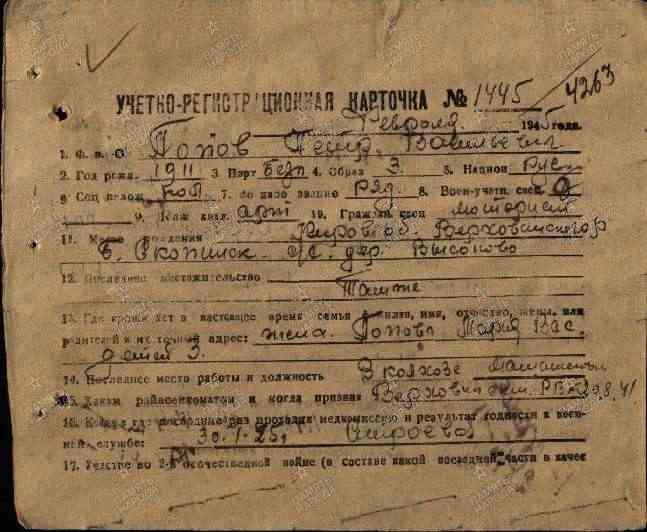 УЧЕТНО-РЕГИСТРАЦИОННАЯ КАРТОЧКА № 1445/4263
Февраля 1945 года.
1. Ф. и. о Попов Петр. Васильевич
2. Год рожд. 1911 3. Парт Безп 4. Образ 3. 5. Национ Русск
6 Соц полож. 7. воинское звание ряд. 8. Воен-учетн. спец. 9
9. Каж квал. арт 10. Граждан. спец моторист
11. Место рождения Кировской Верховинского р
Б. Скопинск. с/с. дер. Высоково
12. Последнее местожительство
Там же
13. Где проживает в настоящее время семья фамилия, имя, отчество, жены, или
родителей и их точный адрес: жена. Попова Мария Вас.
детей 3.
14. Последнее место работы и должность В колхозе
15. Каким райвоенкоматом и когда призван Верховинским РВК 29.8.41
16. Когда в последний раз проходил медкомиссию и результат годности к воен-
ной службе: 30.1.25, Строевой
17. Участие во 2-й отечественной войне (в составе какой последней части в качес